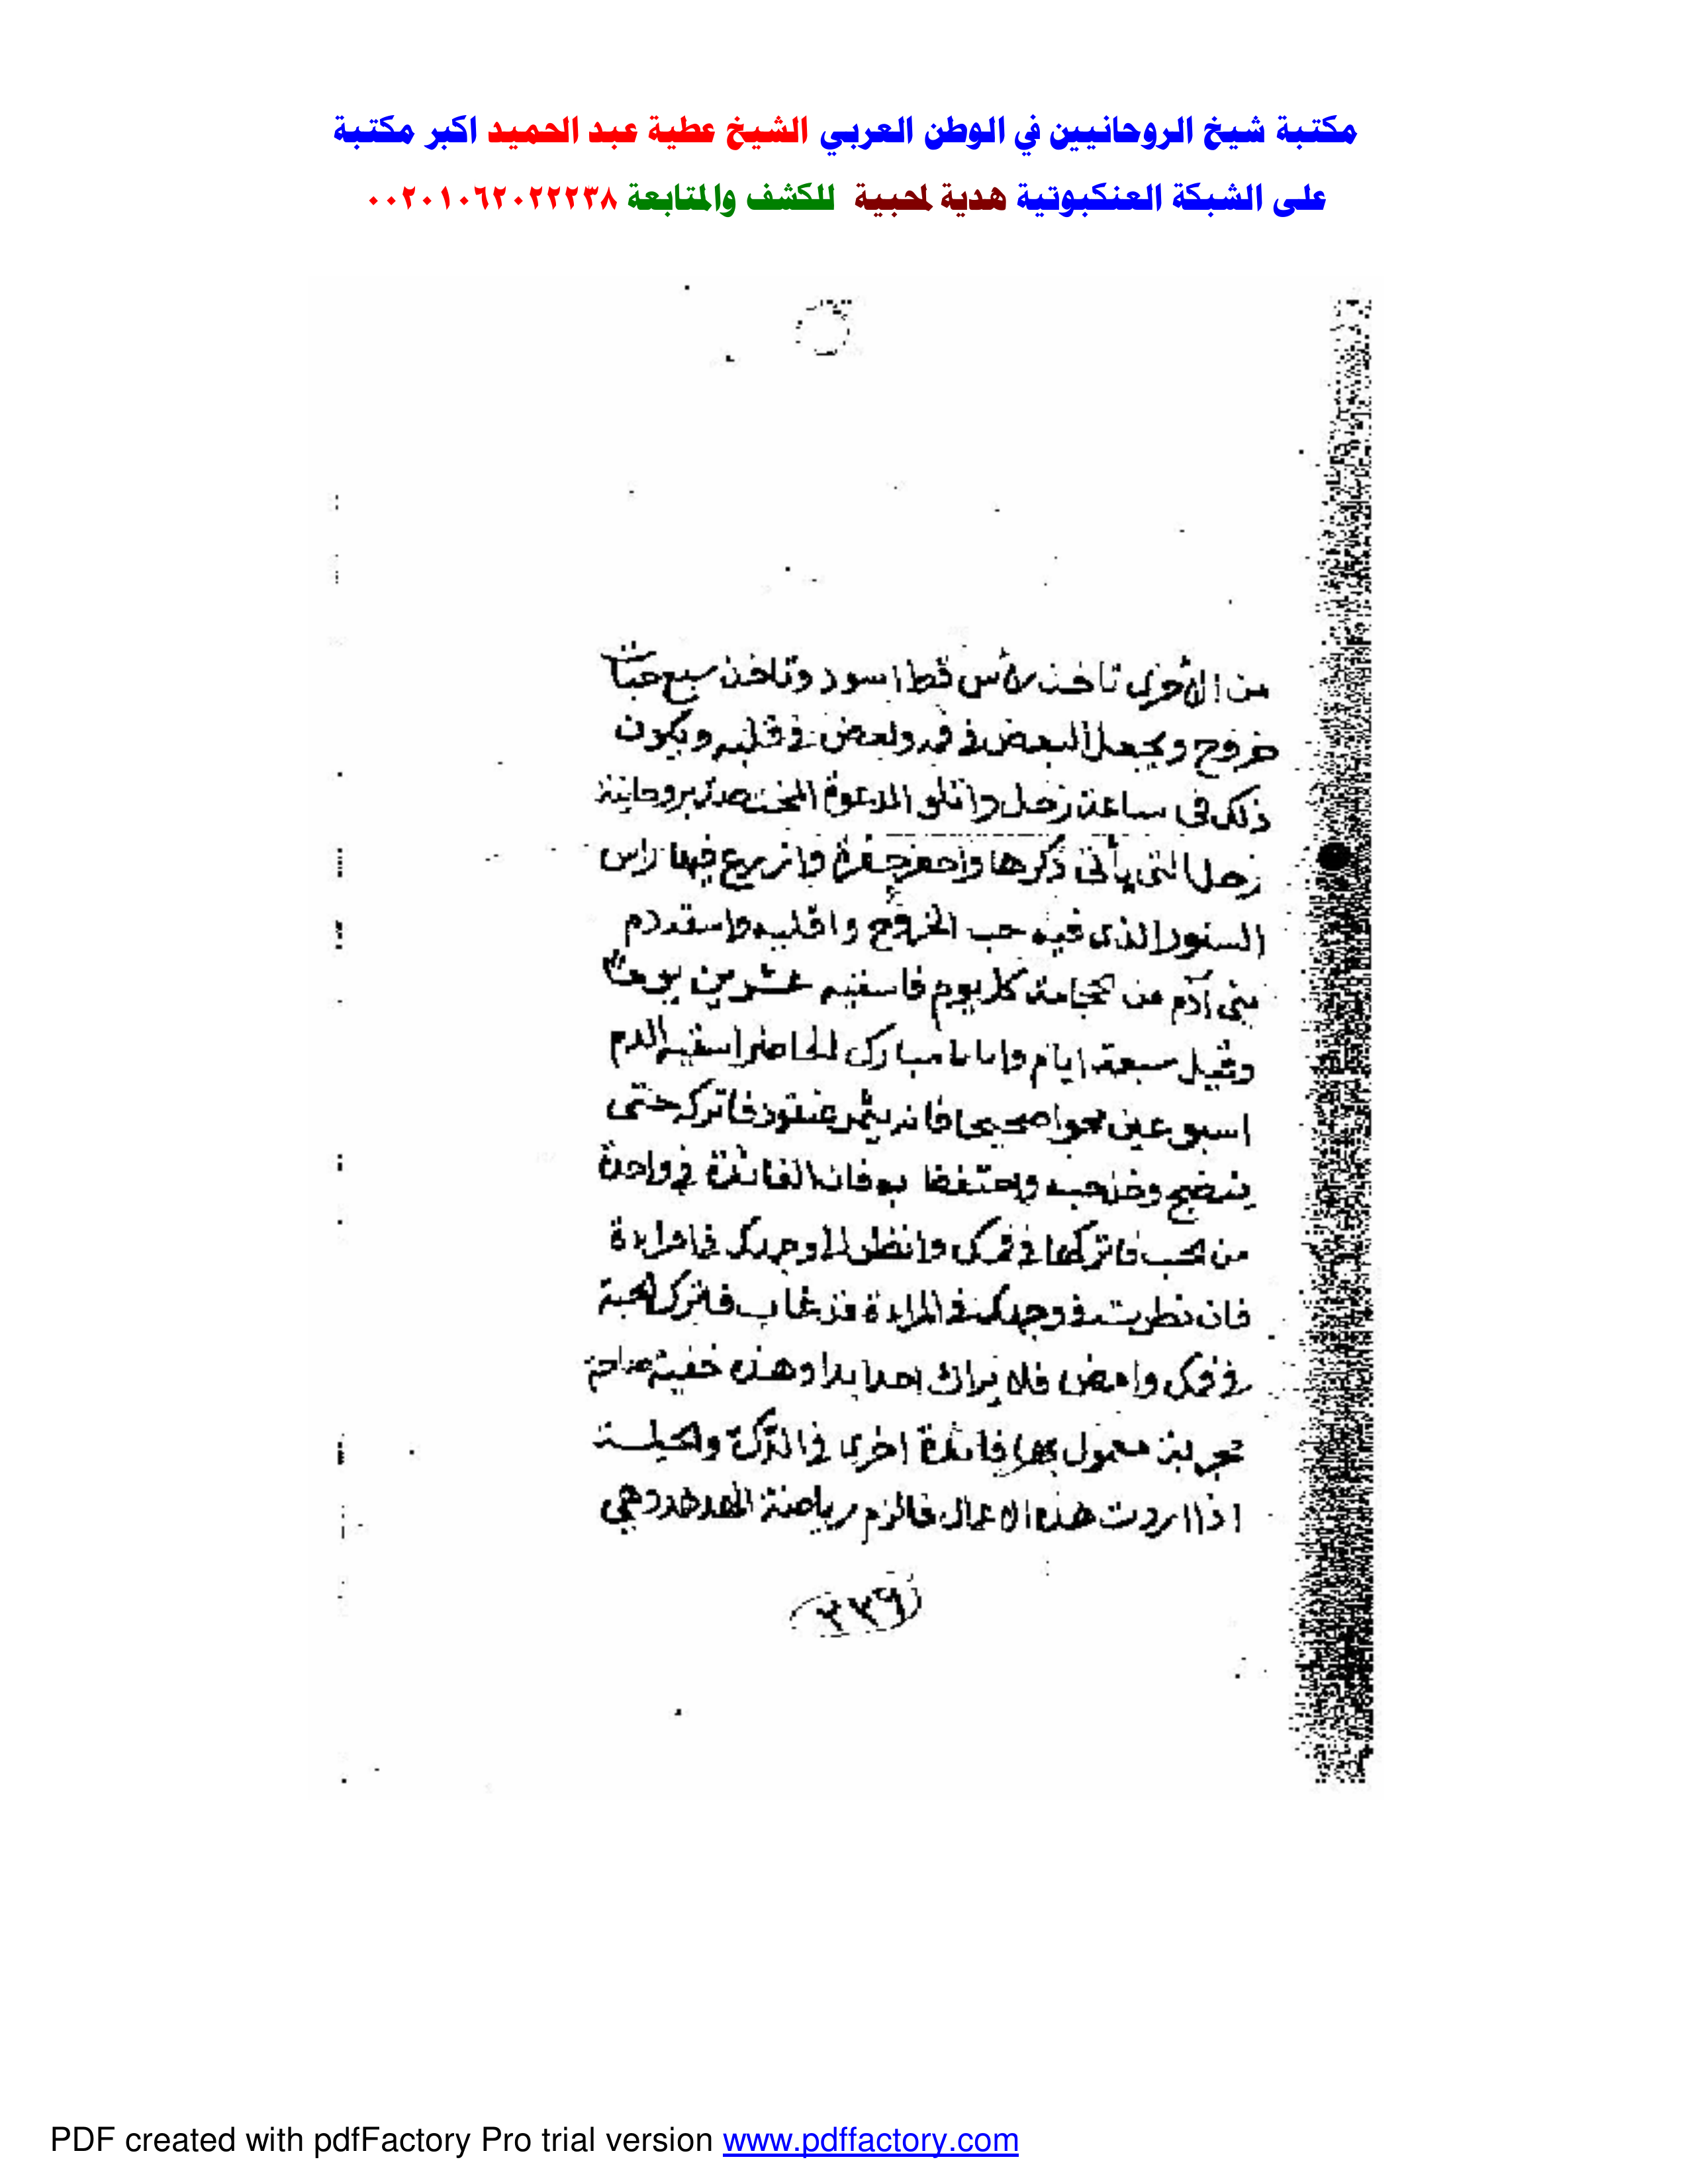 مكتبة شيخ الروحانيين في الوطن العربي الشيخ عطية عبد الحميد اكبر مكتبة
على الشبكة العنكبوتية هدية لمحبية للكشف والمتابعة ٠٠٢٠١٠٦٢٠٢٢٢٣٨
من الأخرى تاخذ رأس قط اسود وتاخذ سبع حبات
خروع ويجعل البعض في فمه وبعض في قلبه ويكون
ذلك في ساعة زحل واتلو الدعوة المختصة بروحانية
زحل التي يأتي ذكرها واحفر حفرة وازرع فيها راس
السنور الذي فيه حب الخروع و اقلبه واسقه دم
بني آدم من الحجامة كل يوم فاسقيه عشرين يوما
وقيل سبعة ايام وانا يا مبارك الحاضر اسقيه الدم
اسبوعين فانه يثمر عنقود فاتركه حتى
ينضج وخذ حبه واحتفظ به فان الفائدة في واحدة
من الحب فاتركها في فمك وانظر الى وجهك في امراءة
فان نظرت في وجهك في المراءة قد غاب فاترك الحبة
في فمك وامض فلا يراك احد ابدا وهذه خفية
مجربة معمول بها فائدة اخرى في التركة والجيلة
اذا اردت هذه الاعمال فالزم رياضة الهدهد وهي
٢٣٩
PDF created with pdfFactory Pro trial version www.pdffactory.com